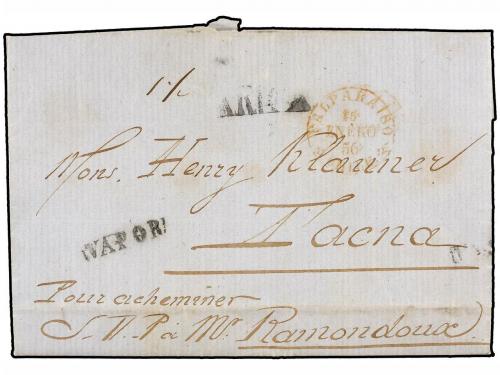 ARICA
VALPARAISO
15
ENERO
56
Mons. Henry Klauner
Tacna
VAPOR
Pour acheminer
S.V.P. à Mr. Ramondoux